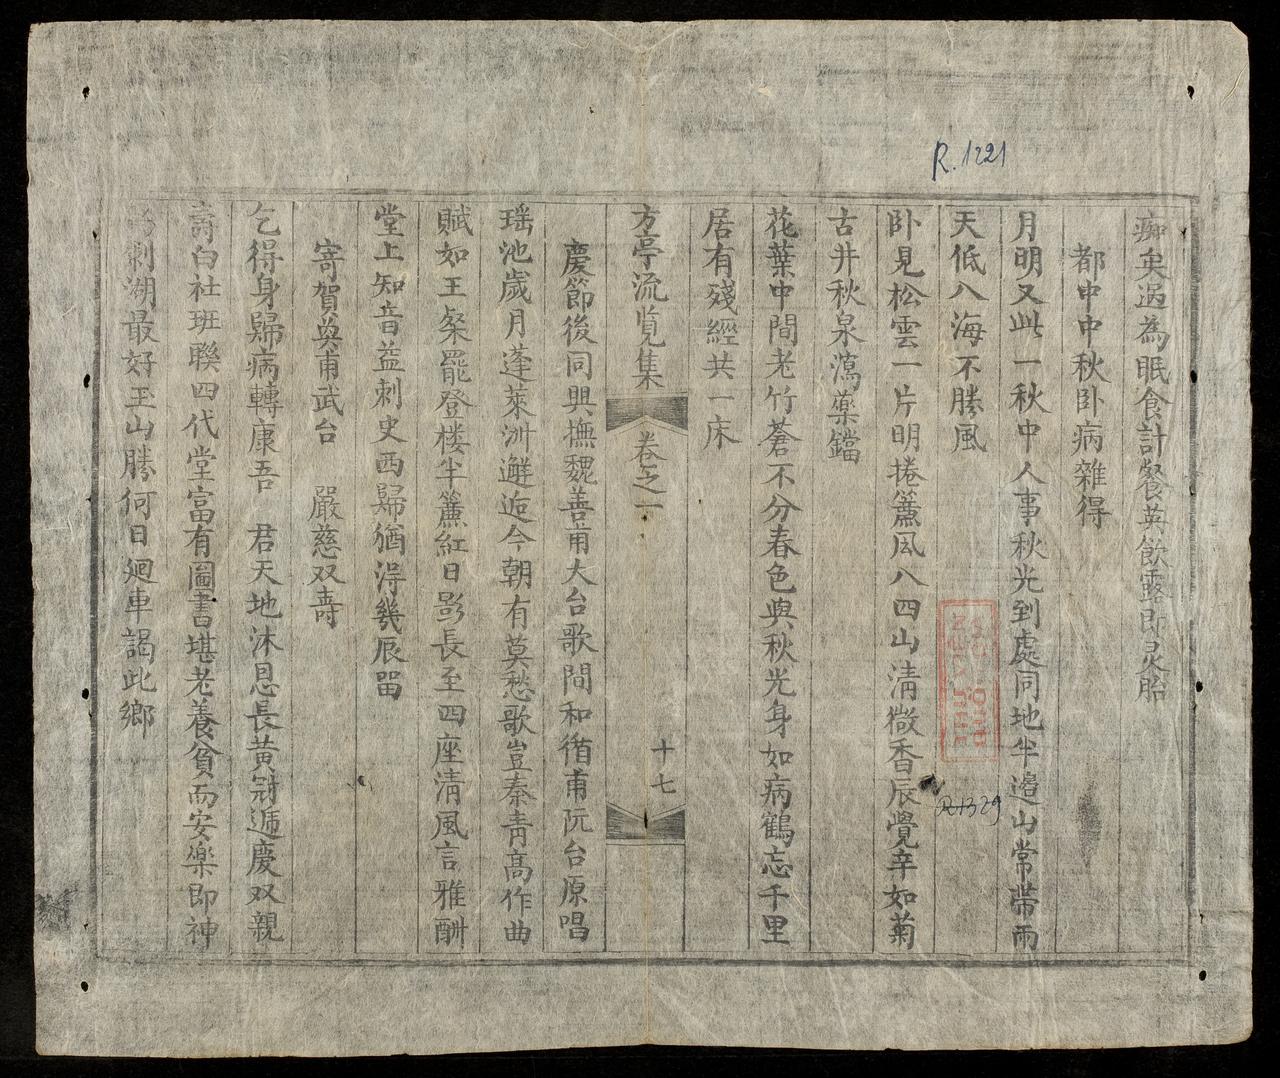 R.1221
痴矣過為眠食計餐英飲露即灵胎
都中中秋卧病雜得
月明又此一秋中人事秋光到處同地半邉山常帶雨
天低八海不勝風
卧見松雲一片明捲簾風八四山清微香辰覺辛如菊
古井秋泉瀉藥鐺
花葉中間老竹蒼不分春色與秋光身如病鶴忘千里
居有殘經共一床
方亭流覧集 卷之一 十七
慶節後同興撫魏善甫大台歌間和循甫阮台原唱
瑶池歲月蓬萊洲邂逅今朝有莫愁歌豈秦青高作曲
賦如王粲罷登楼半簾紅日影長至四座清風言雅酬
堂上知音益刺史西歸猶淂幾辰畱
寄賀奐甫武台 嚴慈双壽
乞得身歸病轉康吾 君天地沐恩長黄冠遞慶双親
壽白社班聯四代堂富有圖書堪老養貧而安樂即神
剌湖最好玉山勝何日廻車謁此鄉
R.1329